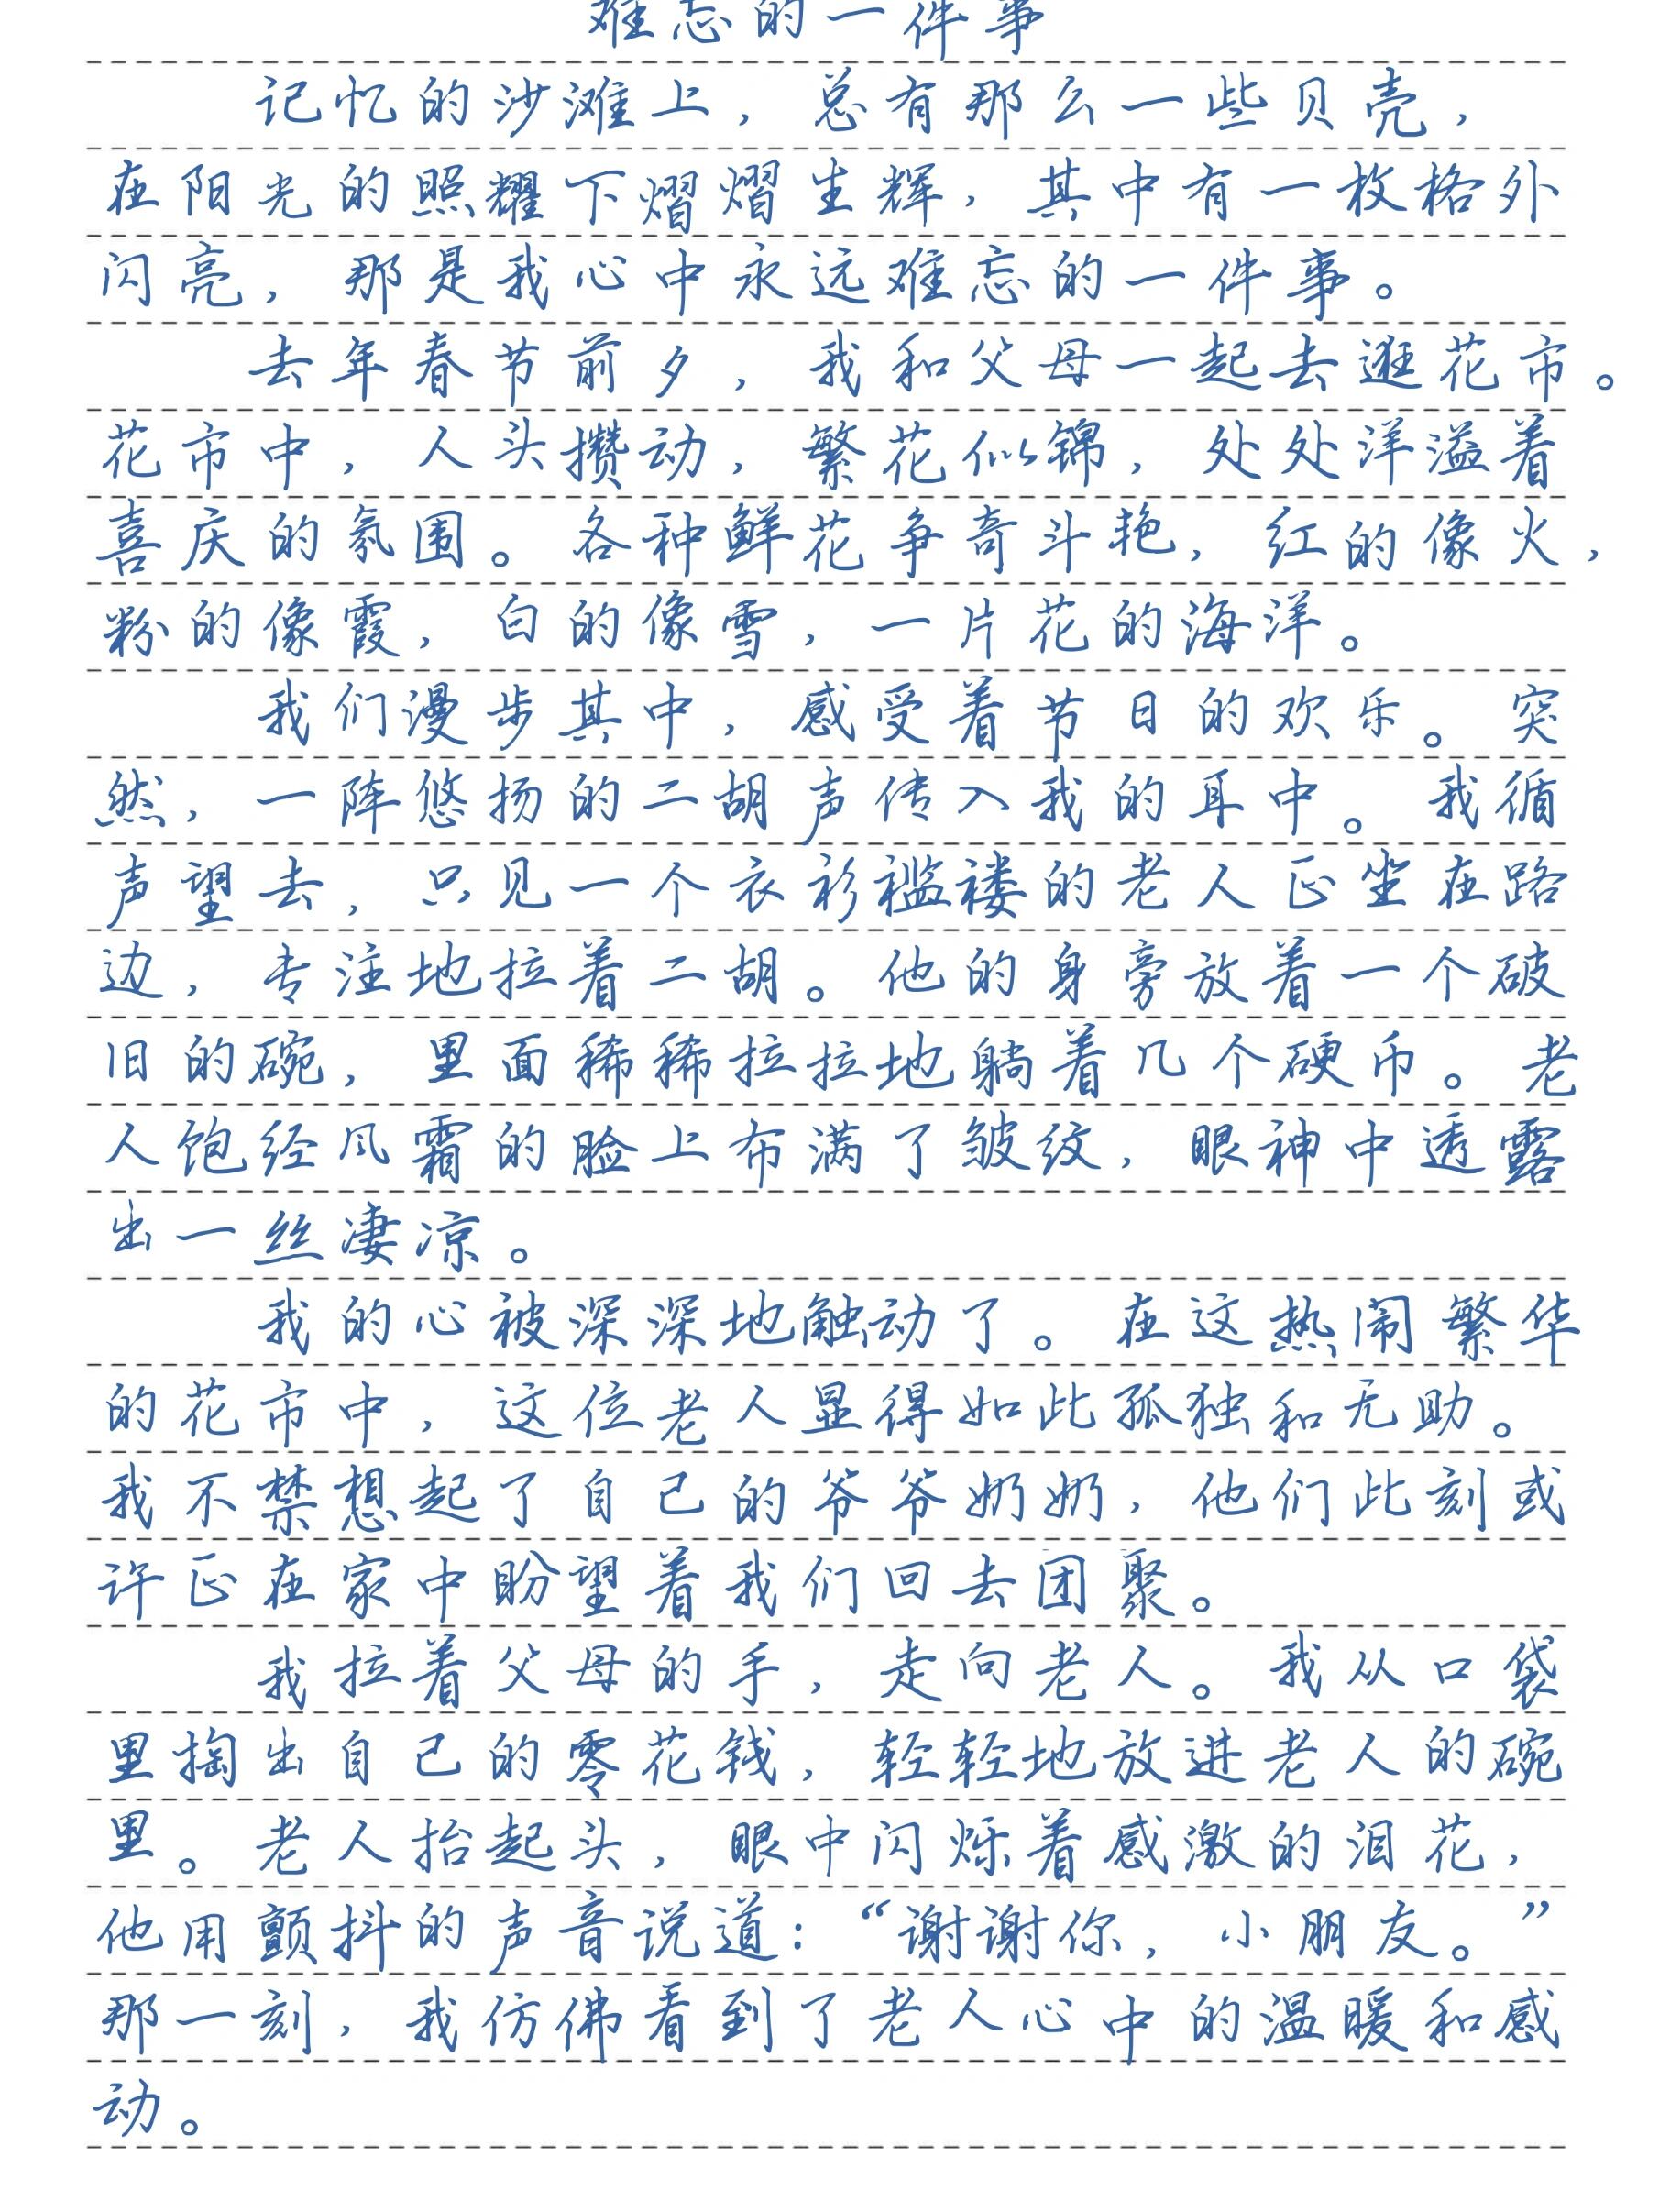 难忘的一件事
记忆的沙滩上，总有那么一些贝壳，
在阳光的照耀下熠熠生辉，其中有一枚格外
闪亮，那是我心中永远难忘的一件事。
去年春节前夕，我和父母一起去逛花市。
花市中，人头攒动，繁花似锦，处处洋溢着
喜庆的氛围。各种鲜花争奇斗艳，红的像火，
粉的像霞，白的像雪，一片花的海洋。
我们漫步其中，感受着节日的欢乐。突
然，一阵悠扬的二胡声传入我的耳中。我循
声望去，只见一个衣衫褴褛的老人正坐在路
边，专注地拉着二胡。他的身旁放着一个破
旧的碗，里面稀稀拉拉地躺着几个硬币。老
人饱经风霜的脸上布满了皱纹，眼神中透露
出一丝凄凉。
我的心被深深地触动了。在这热闹繁华
的花市中，这位老人显得如此孤独和无助。
我不禁想起了自己的爷爷奶奶，他们此刻或
许正在家中盼望着我们回去团聚。
我拉着父母的手，走向老人。我从口袋
里掏出自己的零花钱，轻轻地放进老人的碗
里。老人抬起头，眼中闪烁着感激的泪花，
他用颤抖的声音说道：“谢谢你，小朋友。”
那一刻，我仿佛看到了老人心中的温暖和感
动。